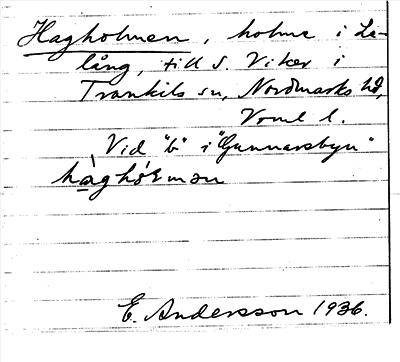 Hagholmen, holme i Le-
lång, till S. Viker i
Trankils sn, Nordmarks hd,
Vrml l.
Vid "b" i "Gunnarsbyn"
hàghólmən
E. Andersson 1936.